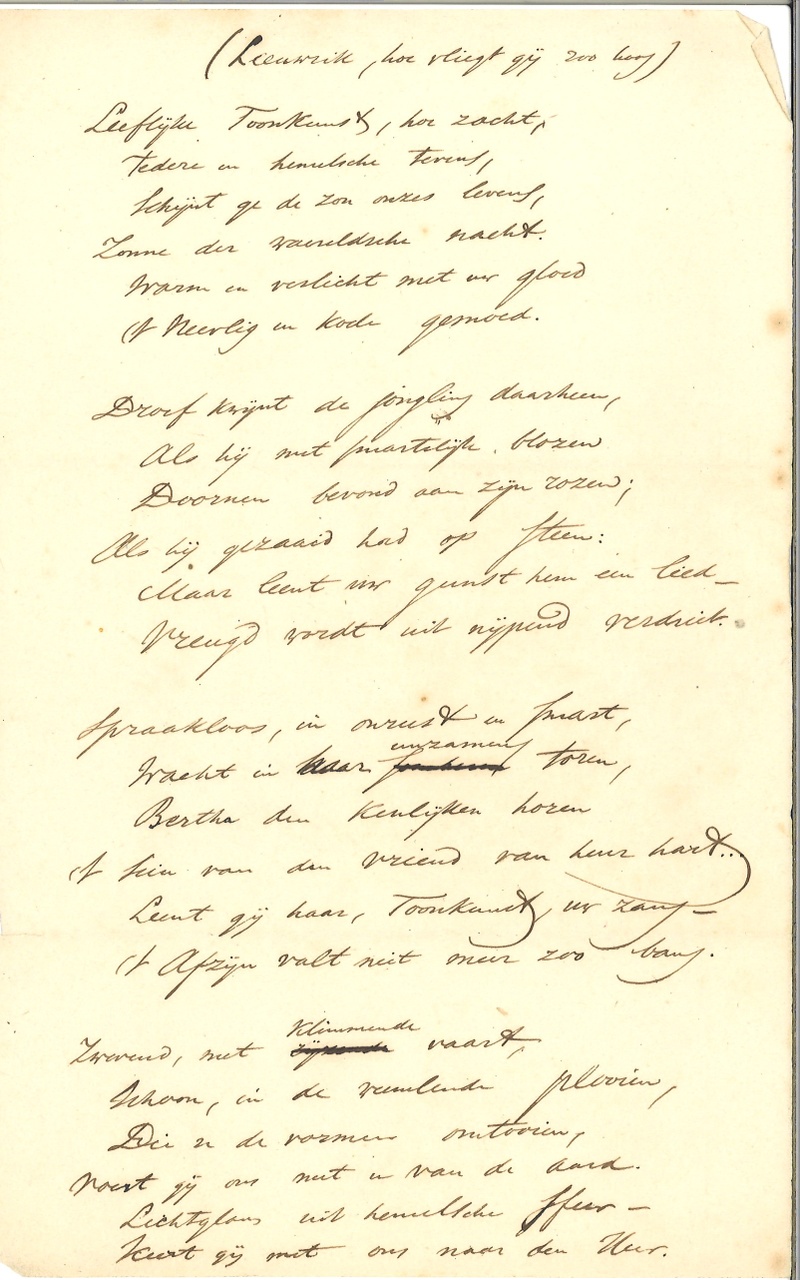 (Leeuwrik, hoe vliegt gij zoo hoog)
Leeflijke Toonkunst, hoe zacht,
Tedere en hemelsche tevens,
Schijnt ge de zon onzes levens,
Zonne der waereldsche nacht.
Warm en verlicht met uw gloed
't Neevlig en koude gemoed.
Droef kwijnt de jongling daarheen,
Als hij met smartelijk blozen
Doornen bevond aan zijn rozen;
Als hij gezaaid had op steen:
Maar leent uw gunst hem een lied—
Vreugd wordt uit nijpend verdriet.
Spraakloos, in onrust en smart,
eenzamen
Wacht in haar toren,
Bertha den kenlijken horen
't Sein van den vriend van heur hart...
Leent gij haar, Toonkunst, uw zang—
't Afzijn valt niet meer zoo bang.
Klimmende
Zwevend, met vaart,
Schoon, in de wemelende plooien,
Die u de vormen omtooien,
Voert gij ons met u van de aard.
Lichtglans uit hemelsche sfeer—
Keert gij met ons naar den Heer.